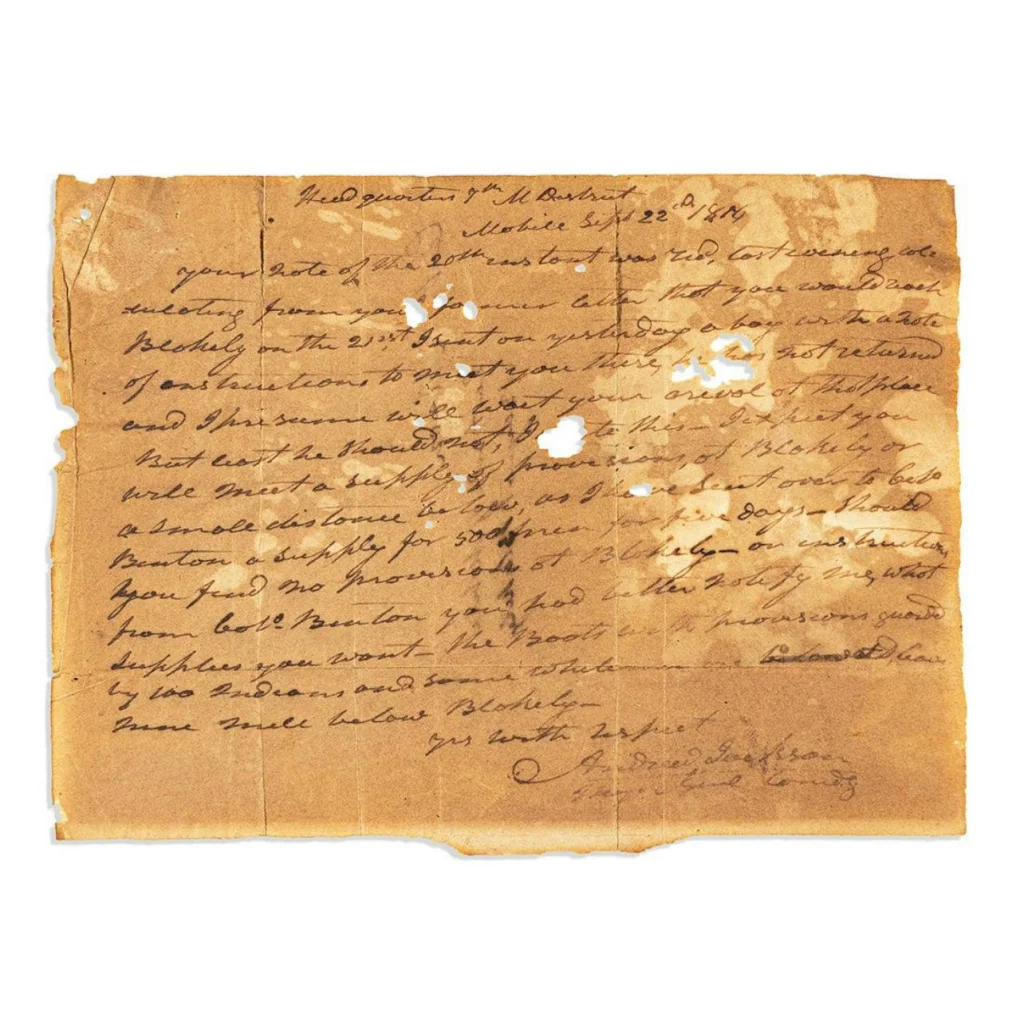 Head quarters 7th M District
Mobile Sept 22d 1814
your note of the 20th instant was recd, last evening cal-
culating from your former letter that you would reach
Blakely on the 21st I sent on yesterday a boy with a note
of instructions to meet you there, he has not returned
and I presume will wait your arival at that place
But least he should not, I to this - I expect you
will meet a supply of provisions, at Blakely or
a small distance below, as I have sent over to Colo
Benton a supply for 500 men for five days - should
you find no provisions at Blakely - or instructions
from Colo. Benton you had better notify me, what
supplies you want - the Boats with provisions guarded
by 100 Indians and some white men are below
nine mile below Blakely -
yrs with respect
Andrew Jackson
Major Genl Comdg